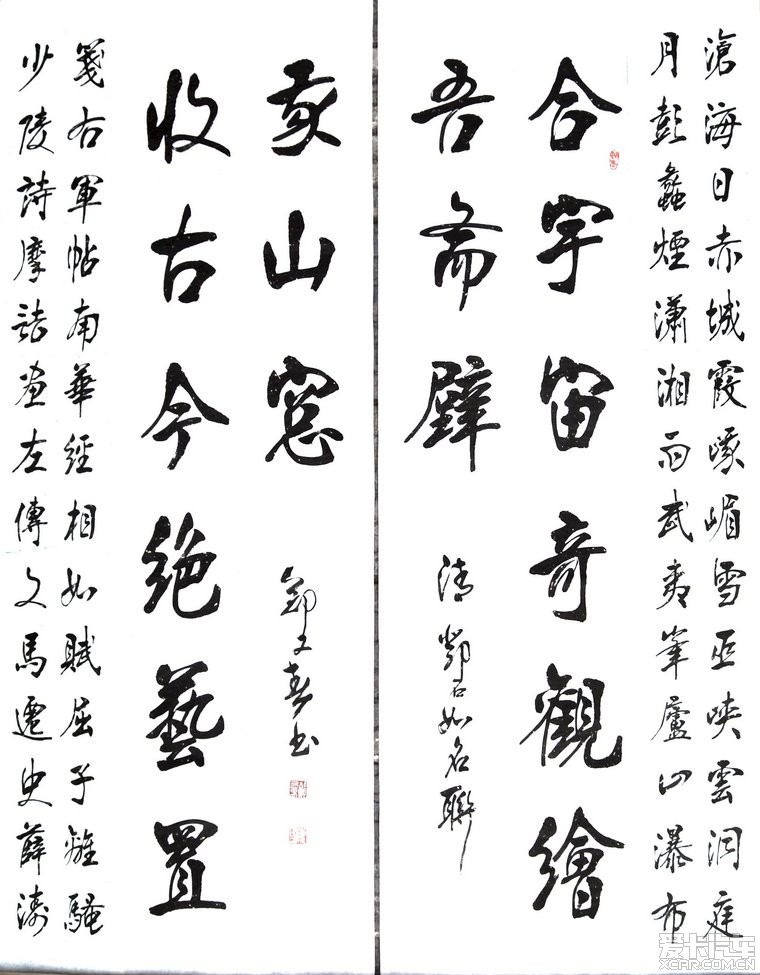 滄海日赤城霞峨嵋雪巫峽雲洞庭
月彭蠡煙瀟湘雨武夷峯廬山瀑布
合宇宙奇觀繪
吾齋壁
清鄧石如名聯
少陵詩摩詰畫左傳文馬遷史薛濤
箋右軍帖南華經相如賦屈子離騷
收古今絕藝置
我山窓
文春书
爱卡汽车
XCAR.COM.CN